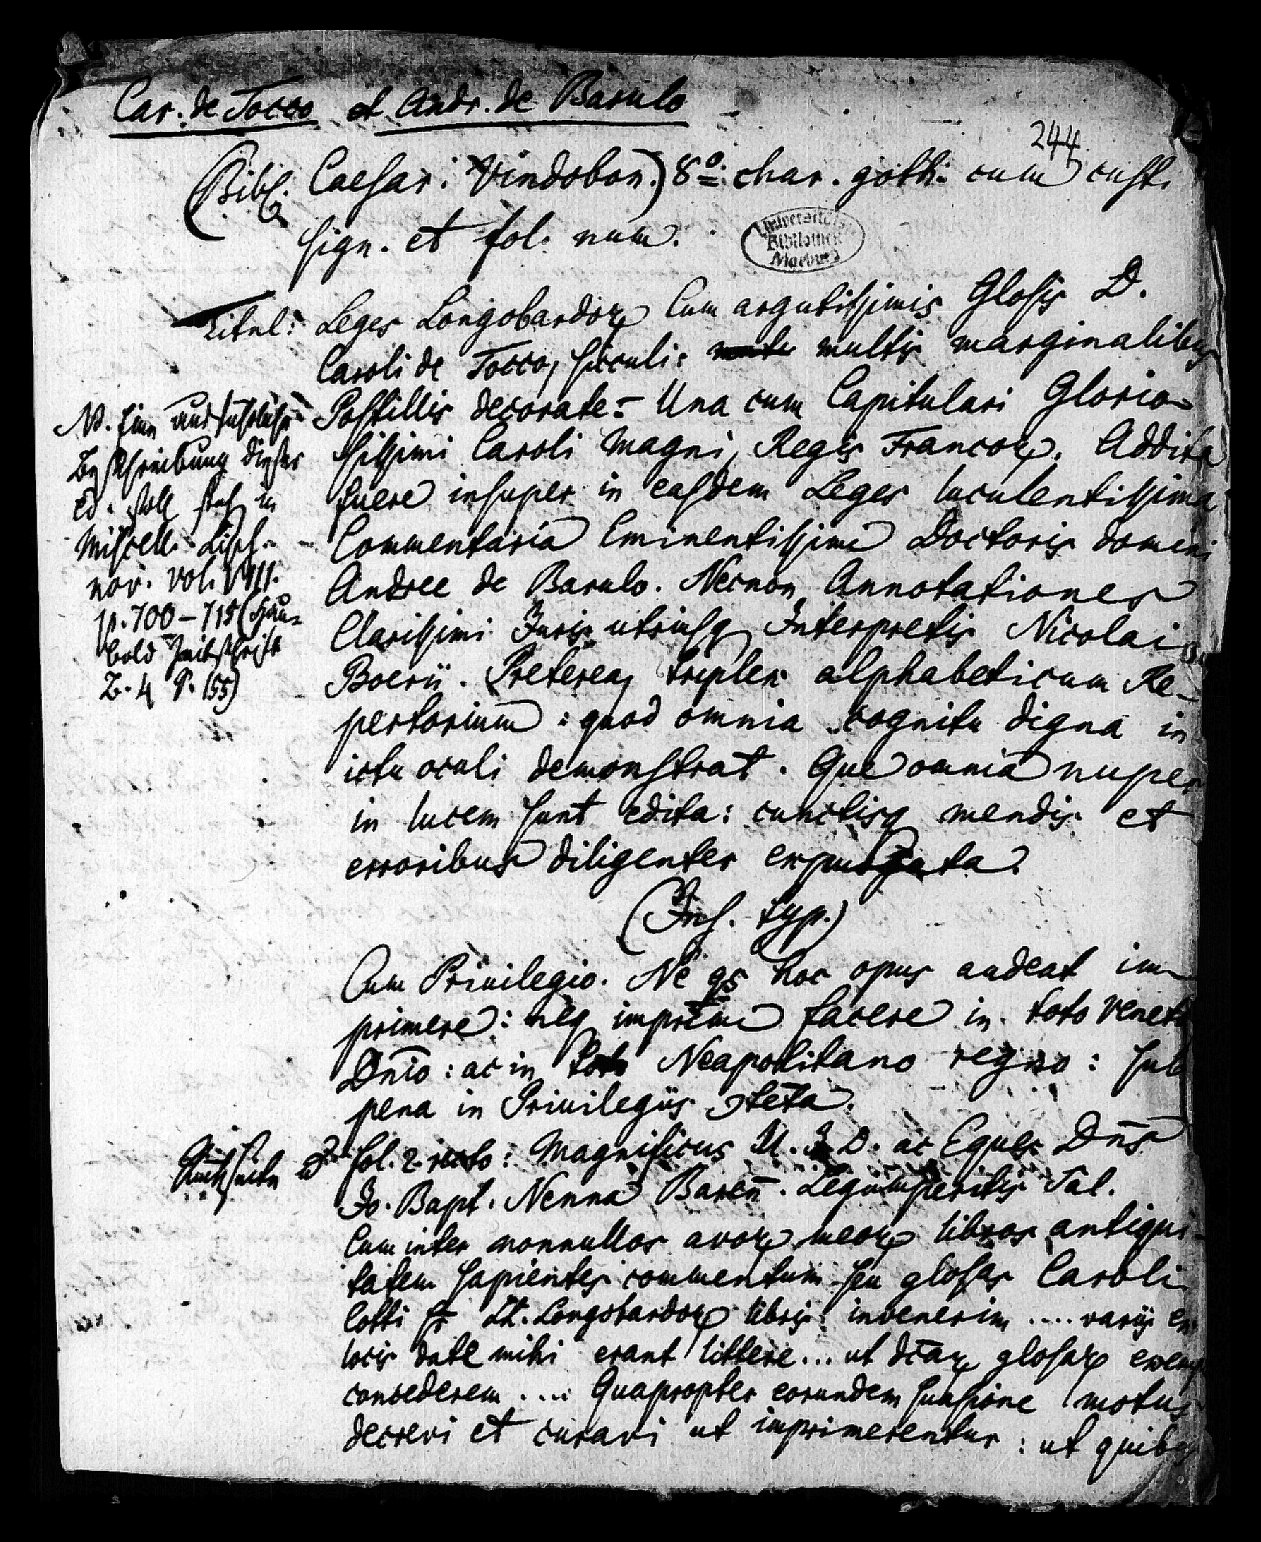 Car. de Tocco et Andr. de Barulo
244
(Bibl. Caesar. Vindobon.) 8º char. goth. cum cust.
sign. et fol. num.
Universitäts
Bibliothek
Marburg
Titul: Leges Longobardoꝝ Cum argutissimis Glosis D.
Caroli de Tocco, sicculi: multis marginalibus
Postillis decorate: Una cum Capitulari Glorio-
sissimi Caroli Magni, Regis Francoꝝ. Addita
fuere insuper in easdem Leges luculentissima
Commentaria Eminentissimi Doctoris domini
Andree de Barulo. Necnon Annotationes
Clarissimi Juris utriusqꝫ Interpretis Nicolai
Boerii. Preterea triplex alphabeticum Re-
pertorium: quod omnia cognitu digna in
ictu oculi demonstrat. Que omnia nuper
in lucem sunt edita: cunctisqꝫ mendis et
erroribus diligenter expurgata.
NB. Eine ausführliche
Beschreibung dieser
Ed. soll stehen in
Miscell. Lips.
nov. vol. VIII.
p. 700-715 (Hau-
bold Zeitschrift
B. 4 S. 155)
(Ins. typ.)
Cum Privilegio. Ne qs hoc opus audeat im-
primere: neqꝫ imprimi facere in toto Veneto
Dn̄io: ac in toto Neapolitano regno: sub
pena in Privilegiis ꝯtēta.
Rückseite
fol. 2. recto: Magnificus U. J. D. ac Eques Dn̄s
Jo. Bapt. Nenna Baren̄. Legumperitis Sal.
Cum inter nonnullos avoꝝ meoꝝ libros antiqui-
tatem sapientes commentum seu glosas Caroli
Cotti sr̄ LL. Longobardoꝝ libris invenerim .... variis ex
locis date mihi erant littere... ut dc̄aꝝ glosaꝝ exempl
concederem .... Quapropter eorundem suasione motus
decrevi et curavi ut imprimerentur: ut quibus